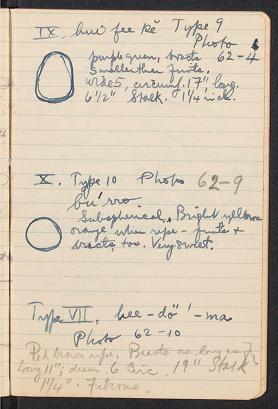 IX. huu' fee kĕ Type 9
Photo
purple green, bracts 62-4
smaller than fruits.
wide 5, circumf. 17" long.
6½" Stalk. 1¼" wide.
X. Type 10 Photo 62-9
bu' rro
Subspherical. Bright yellow
orange when ripe - fruits +
bracts, too. Very sweet.
Type VII. hee-dö'-ma
Photo 62-10
Red brown ripe. Bracts as long as
long 11"; diam. 6 Circ. 19" Stalk
1¼" - Fibrous.